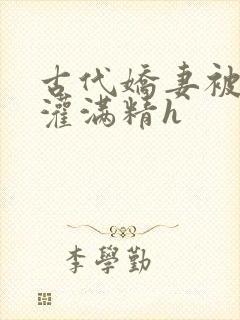 古代嬌妻被
灌满精h
李學勤